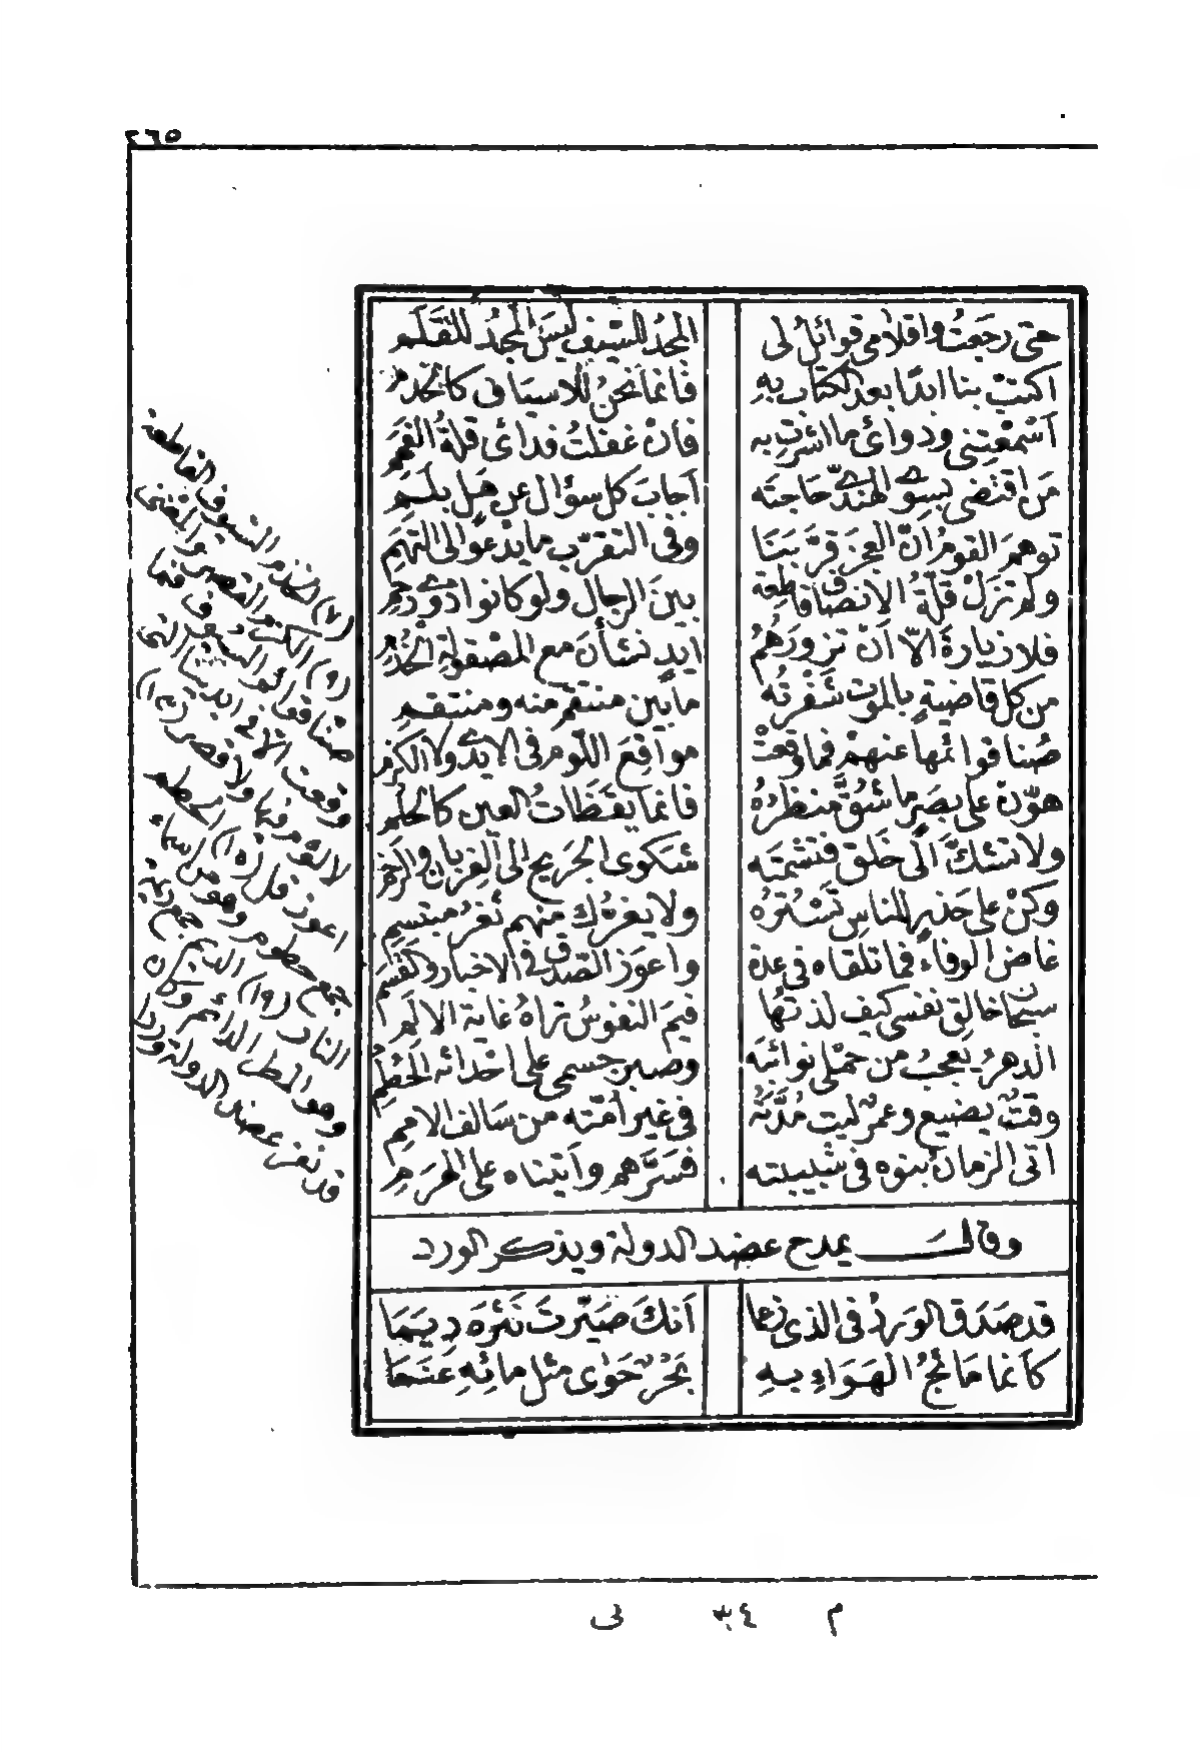 ٢٦٥
حتى رجعتُ واقلامى قوائلُ لى المجدُ للسّيف ليسَ المجدُ للقَلَم
اكتبْ بنا ابدًا بعد الكتاب بهِ فانما نحنُ للاسياف كالخدم
أَسْمَعْتِنى ودوائى ما اشرتِ به فان غفلتُ فدائى قلةُ الفهَمِ
مَن اقتضى بسوى الهندىّ حاجته أجابَ كل سؤال عن هَل بلَمِ
توهمَ القومُ أنّ العجزَ قرَّبنَا وفى التقرّب ما يدعُو الى التهَمِ
ولم تزلْ قلّةُ الانصاف قاطعة بينَ الرجال ولو كانوا ذوى رحِم
فلا زيارةَ الّا أنْ تزورَهُمُ ايدٍ نشأنَ مع المصْقولة الخُذُمِ
من كل قاضيةٍ بالموت شَفْرتُه مابين منتقَم منه ومنتقِم
صُنا قوائمَها عنهمْ فما وقعتْ مواقِعَ اللّومِ فى الايدى ولا الكزمِ
هوّن على بصَرٍ ما شُقَّ منظرُهُ فانما يقَظَاتُ العين كالحلُم
ولا تشكَّ الَى خَلق فتشمتَه شكوى الجَريح الى الغِربان والرخَم
وكنْ على حذرٍ للناسِ تَسْتُرُهُ ولا يغرّك منهم ثغرُ مبتسِم
غاض الوفاءُ فما تلقاه فى عدة واعوز الصّدق فى الاخبار والقَسَم
سبحان خالق نفسى كيف لذتُها فيمَ النفوسُ تراهُ غايةَ الالَم
الدهرُ يعجبُ من حمْلى نوائبَه وصبرِ جسمى على احْداثه الحُطُم
وقتٌ يضيع وعمرٌ ليت مُدَّتَهُ فى غير أمّته من سَالف الامم
اتى الزمانَ بنوه فى شبيبته فسَرَّهم واتَيناه على الهَرَمِ
وقالــ يمدح عضد الدولة ويذكر الورد
قد صَدَق الوردُ فى الذى زعما أنكَ صَيّرتَ نَثرَه دِيَمَا
كأنما مَائجُ الهَوَاءِ بهِ بَحْرٌ حَوَى مثل مائهِ عَنَمَا
(٧) الخذم السّيوف القاطعة
(٩) الكزم القصر والمعنى
صُنا قوائم السيوف فما
وقعت الا فى ايدينا التى
لا لؤم فيها ولا قصر (١٣)
اعوز قل (١٥) الحطم
جمع حطوم وهو من اسماء
النار (١٩) الديم جمع ديمة
وهو المطر الدائم وكان
قد نثر عضد الدولة وردا
م ٣٤ نى